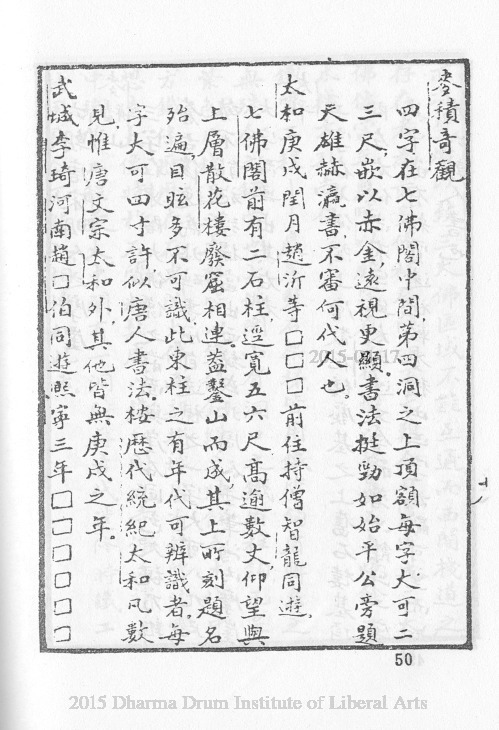 麥積奇觀
四字在七佛閣中間第四洞之上頂額每字大可二
三尺嵌以赤金遠視更顯書法挺勁如始平公旁題
天雄赫瀛書不審何代人也
太和庚戌閏月趙沂等□□□前住持僧智龍同遊
七佛閣前有二石柱逕寬五六尺高逾數丈仰望與
上層散花樓廢窟相連蓋鑿山而成其上所刻題名
殆遍目眩多不可識此東柱之有年代可辨識者每
字大可四寸許似唐人書法桉歷代統紀太和凡數
見惟唐文宗太和外其他皆無庚戌之年
武城李琦河南趙□伯同遊熙寧三年□□□□□□
50
2015 Dharma Drum Institute of Liberal Arts